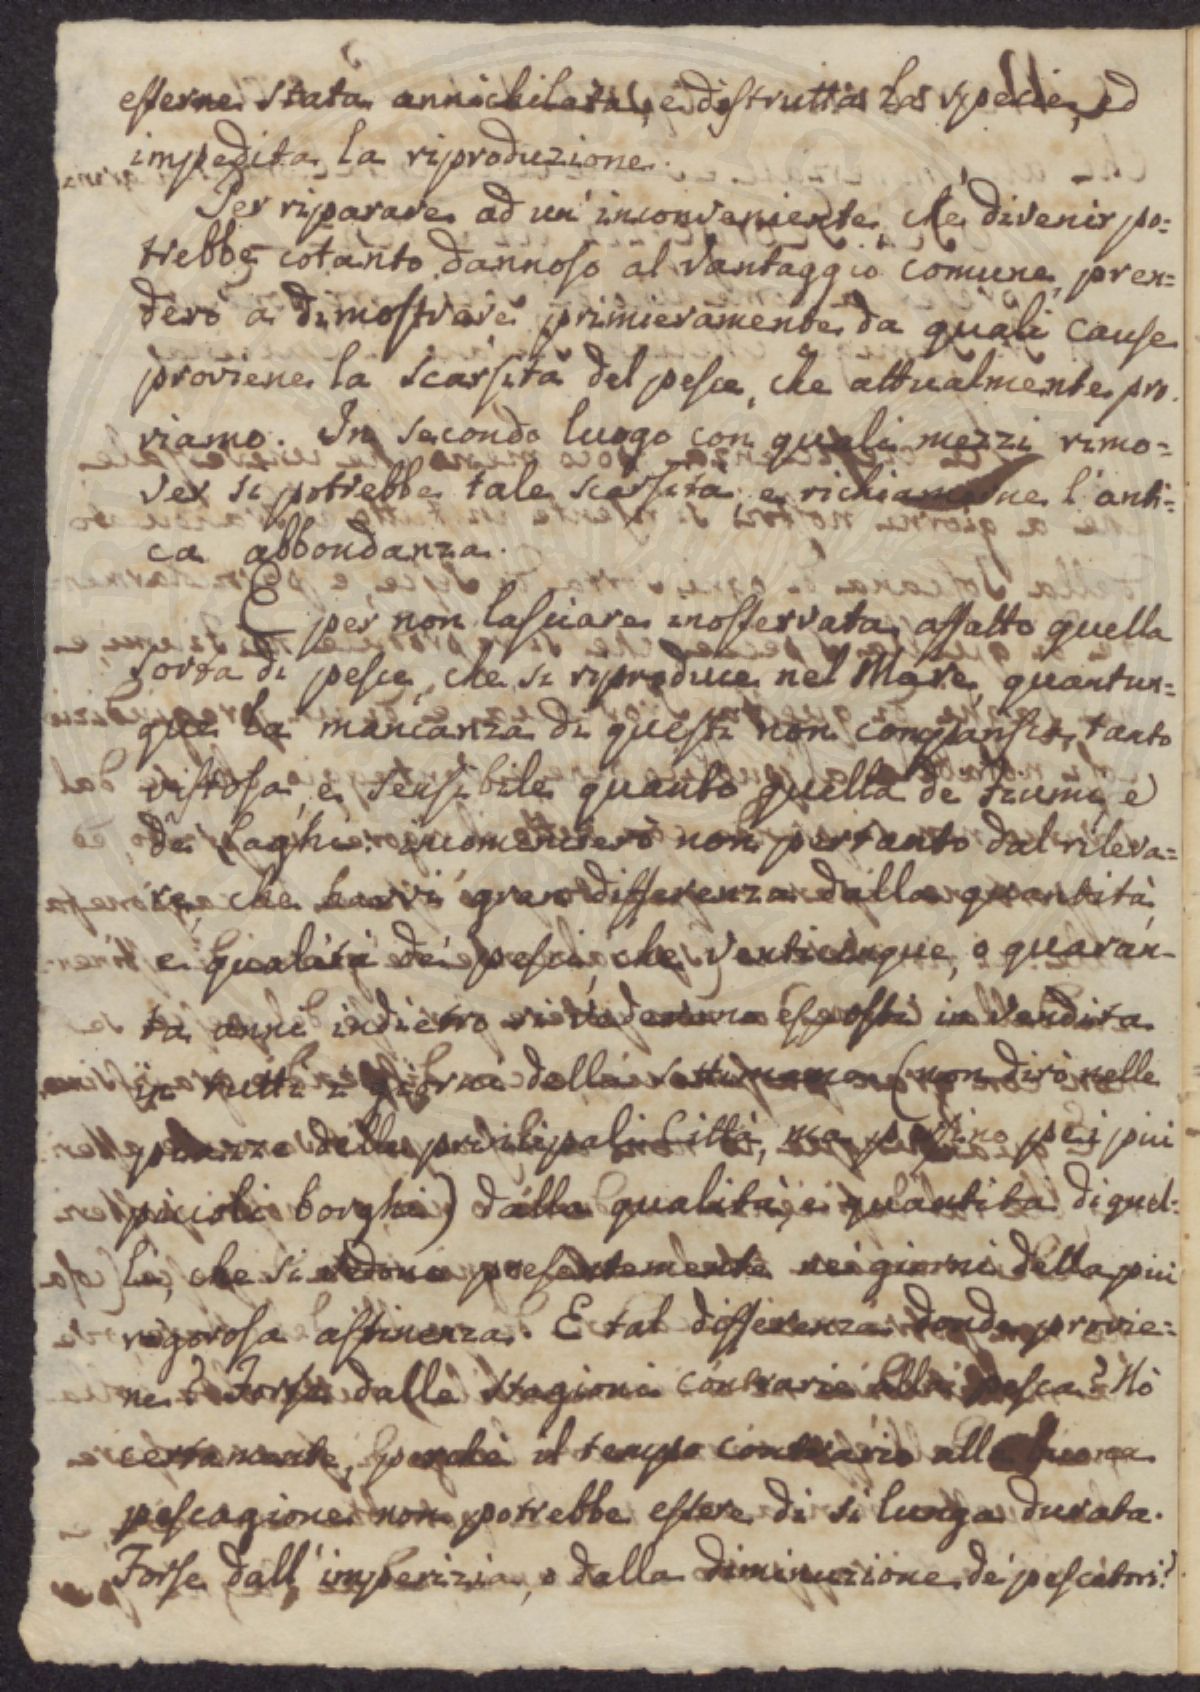 esserne stata annichilata, e distrutta la specie, ed
impedita la riproduzione.
Per riparare ad un' inconveniente, che divenir po=
trebbe cotanto dannoso al vantaggio comune, pren=
derò a dimostrare primieramente da quali cause
proviene la scarsità del pesce, che attualmente pro
viamo. In secondo luogo con quali mezzi rimo=
ver si potrebbe tale scarsità e richiamarne l'anti=
ca abbondanza.
E per non lasciare inosservata affatto quella
sorta di pesce, che si riproduce nel Mare, quantun=
que la mancanza di questi non comparisca tanto
vistosa, e sensibile quanto quella de' fiumi, e
de' laghi: incomincierò non pertanto dal rileva=
re, che havvi gran differenza dalla quantità,
e qualità de' pesci, che venticinque, o quaran-
ta anni indietro si vedevano esposti in vendita
in tutti i giorni della settimana (non dirò nelle
piazze delle principali Città, ma persino pei più
piccoli borghi) dalla qualità, e quantità di quel=
li, che si vedono presentemente nei giorni della più
rigorosa astinenza. E tal differenza donde provie=
ne? Forse dalle stagioni contrarie alla pesca? Nò
certamente, perchè il tempo contrario alla buona
pescagione non potrebbe essere di si lunga durata.
Forse dall'imperizia, o dalla diminuzione de' pescatori?